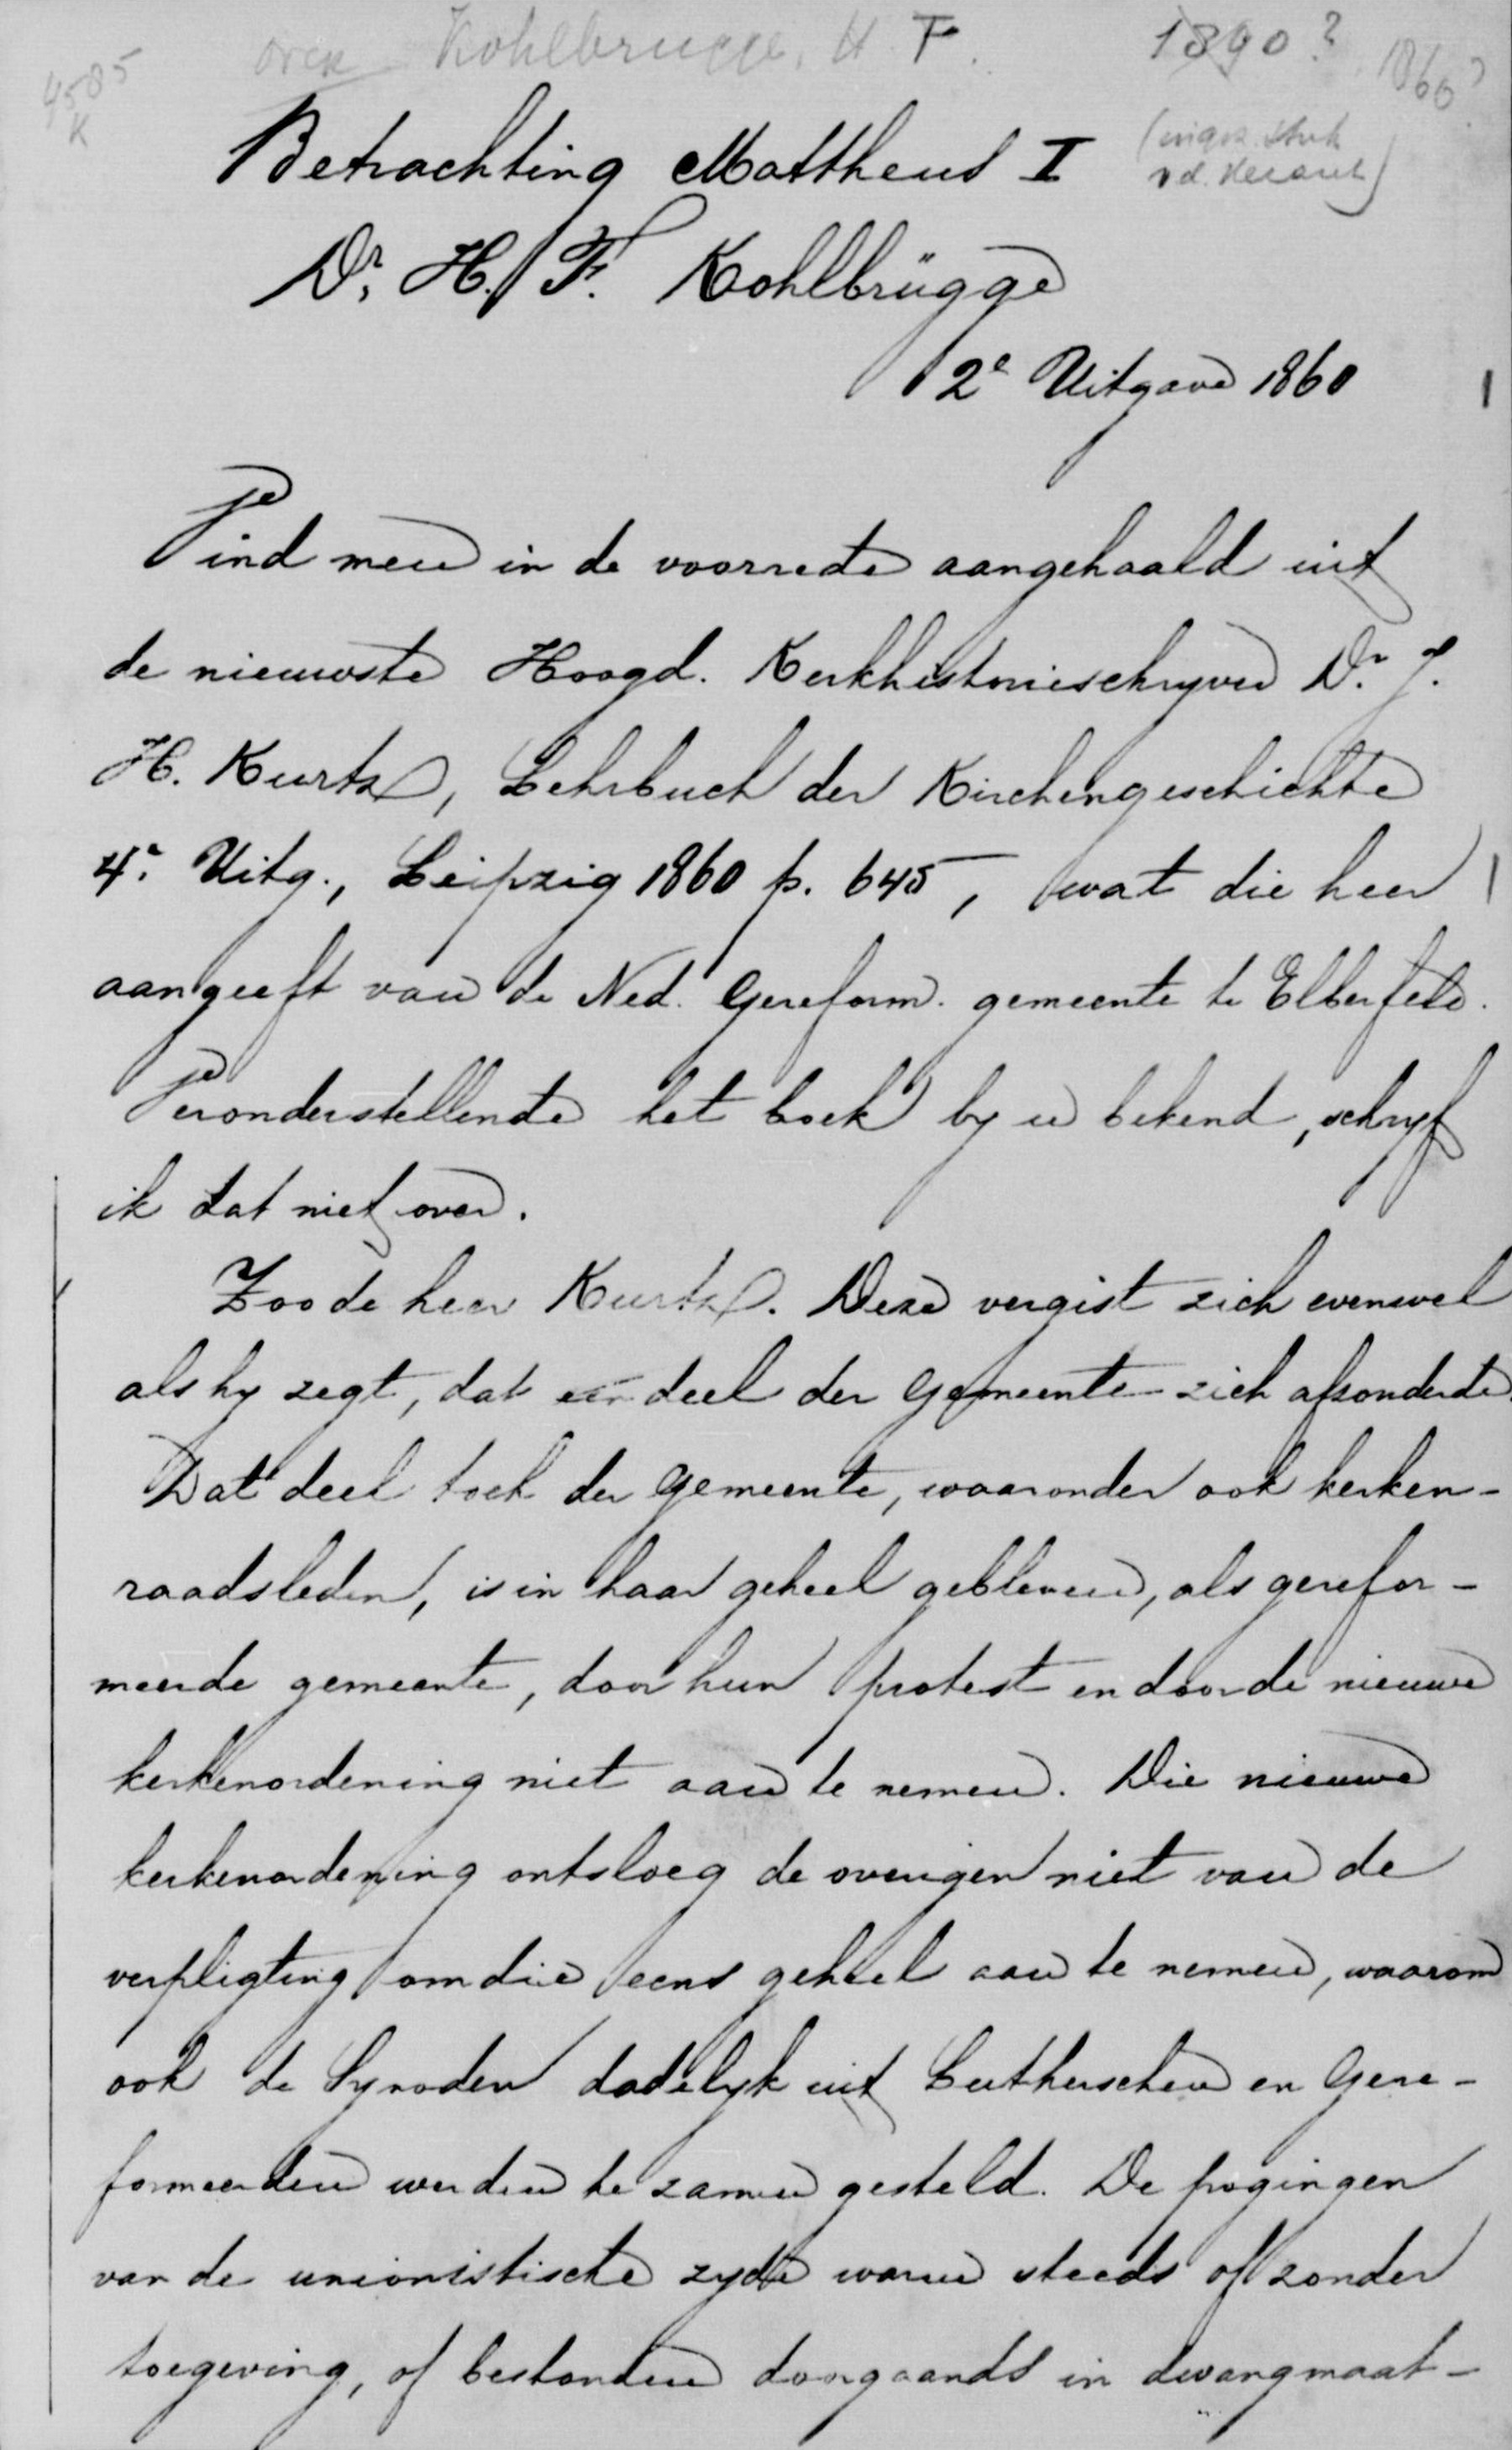 over Kohlbrugge, H. F. 1890? 1860?
4585
K
Betrachting Mattheus I (ingez. stuk
v d. Heraut)
Dr. H. F. Kohlbrügge
2e Uitgave 1860
Vind men in de voorrede aangehaald uit
de nieuwste Hoogd. Kerkhistorieschryver Dr. J.
H. Kurtz, Lehrbuch der Kirchengeschichte
4e. Uitg., Leipzig 1860 p. 645, wat die heer
aangeeft van de Ned. Gereform. gemeente te Elberfeld.
Veronderstellende het boek by u bekend, schryf
ik dat niet over.
Zoo de heer Kurtz. Deze vergist zich evenwel
als hy zegt, dat een deel der Gemeente zich afzonderde.
Dat deel toch der Gemeente, waaronder ook kerken-
raadsleden, is in haar geheel gebleven, als gerefor-
meerde gemeente, door hun protest en door de nieuwe
kerkenordening niet aan te nemen. Die nieuwe
kerkenordening ontsloeg de overigen niet van de
verpligting om die eens geheel aan te nemen, waarom
ook de Synoden dadelyk uit Lutherschen en Gere-
formeerden werden te zamen gesteld. De pogingen
van de unionistische zyde waren steeds of zonder
toegeving, of bestonden doorgaands in dwangmaat-